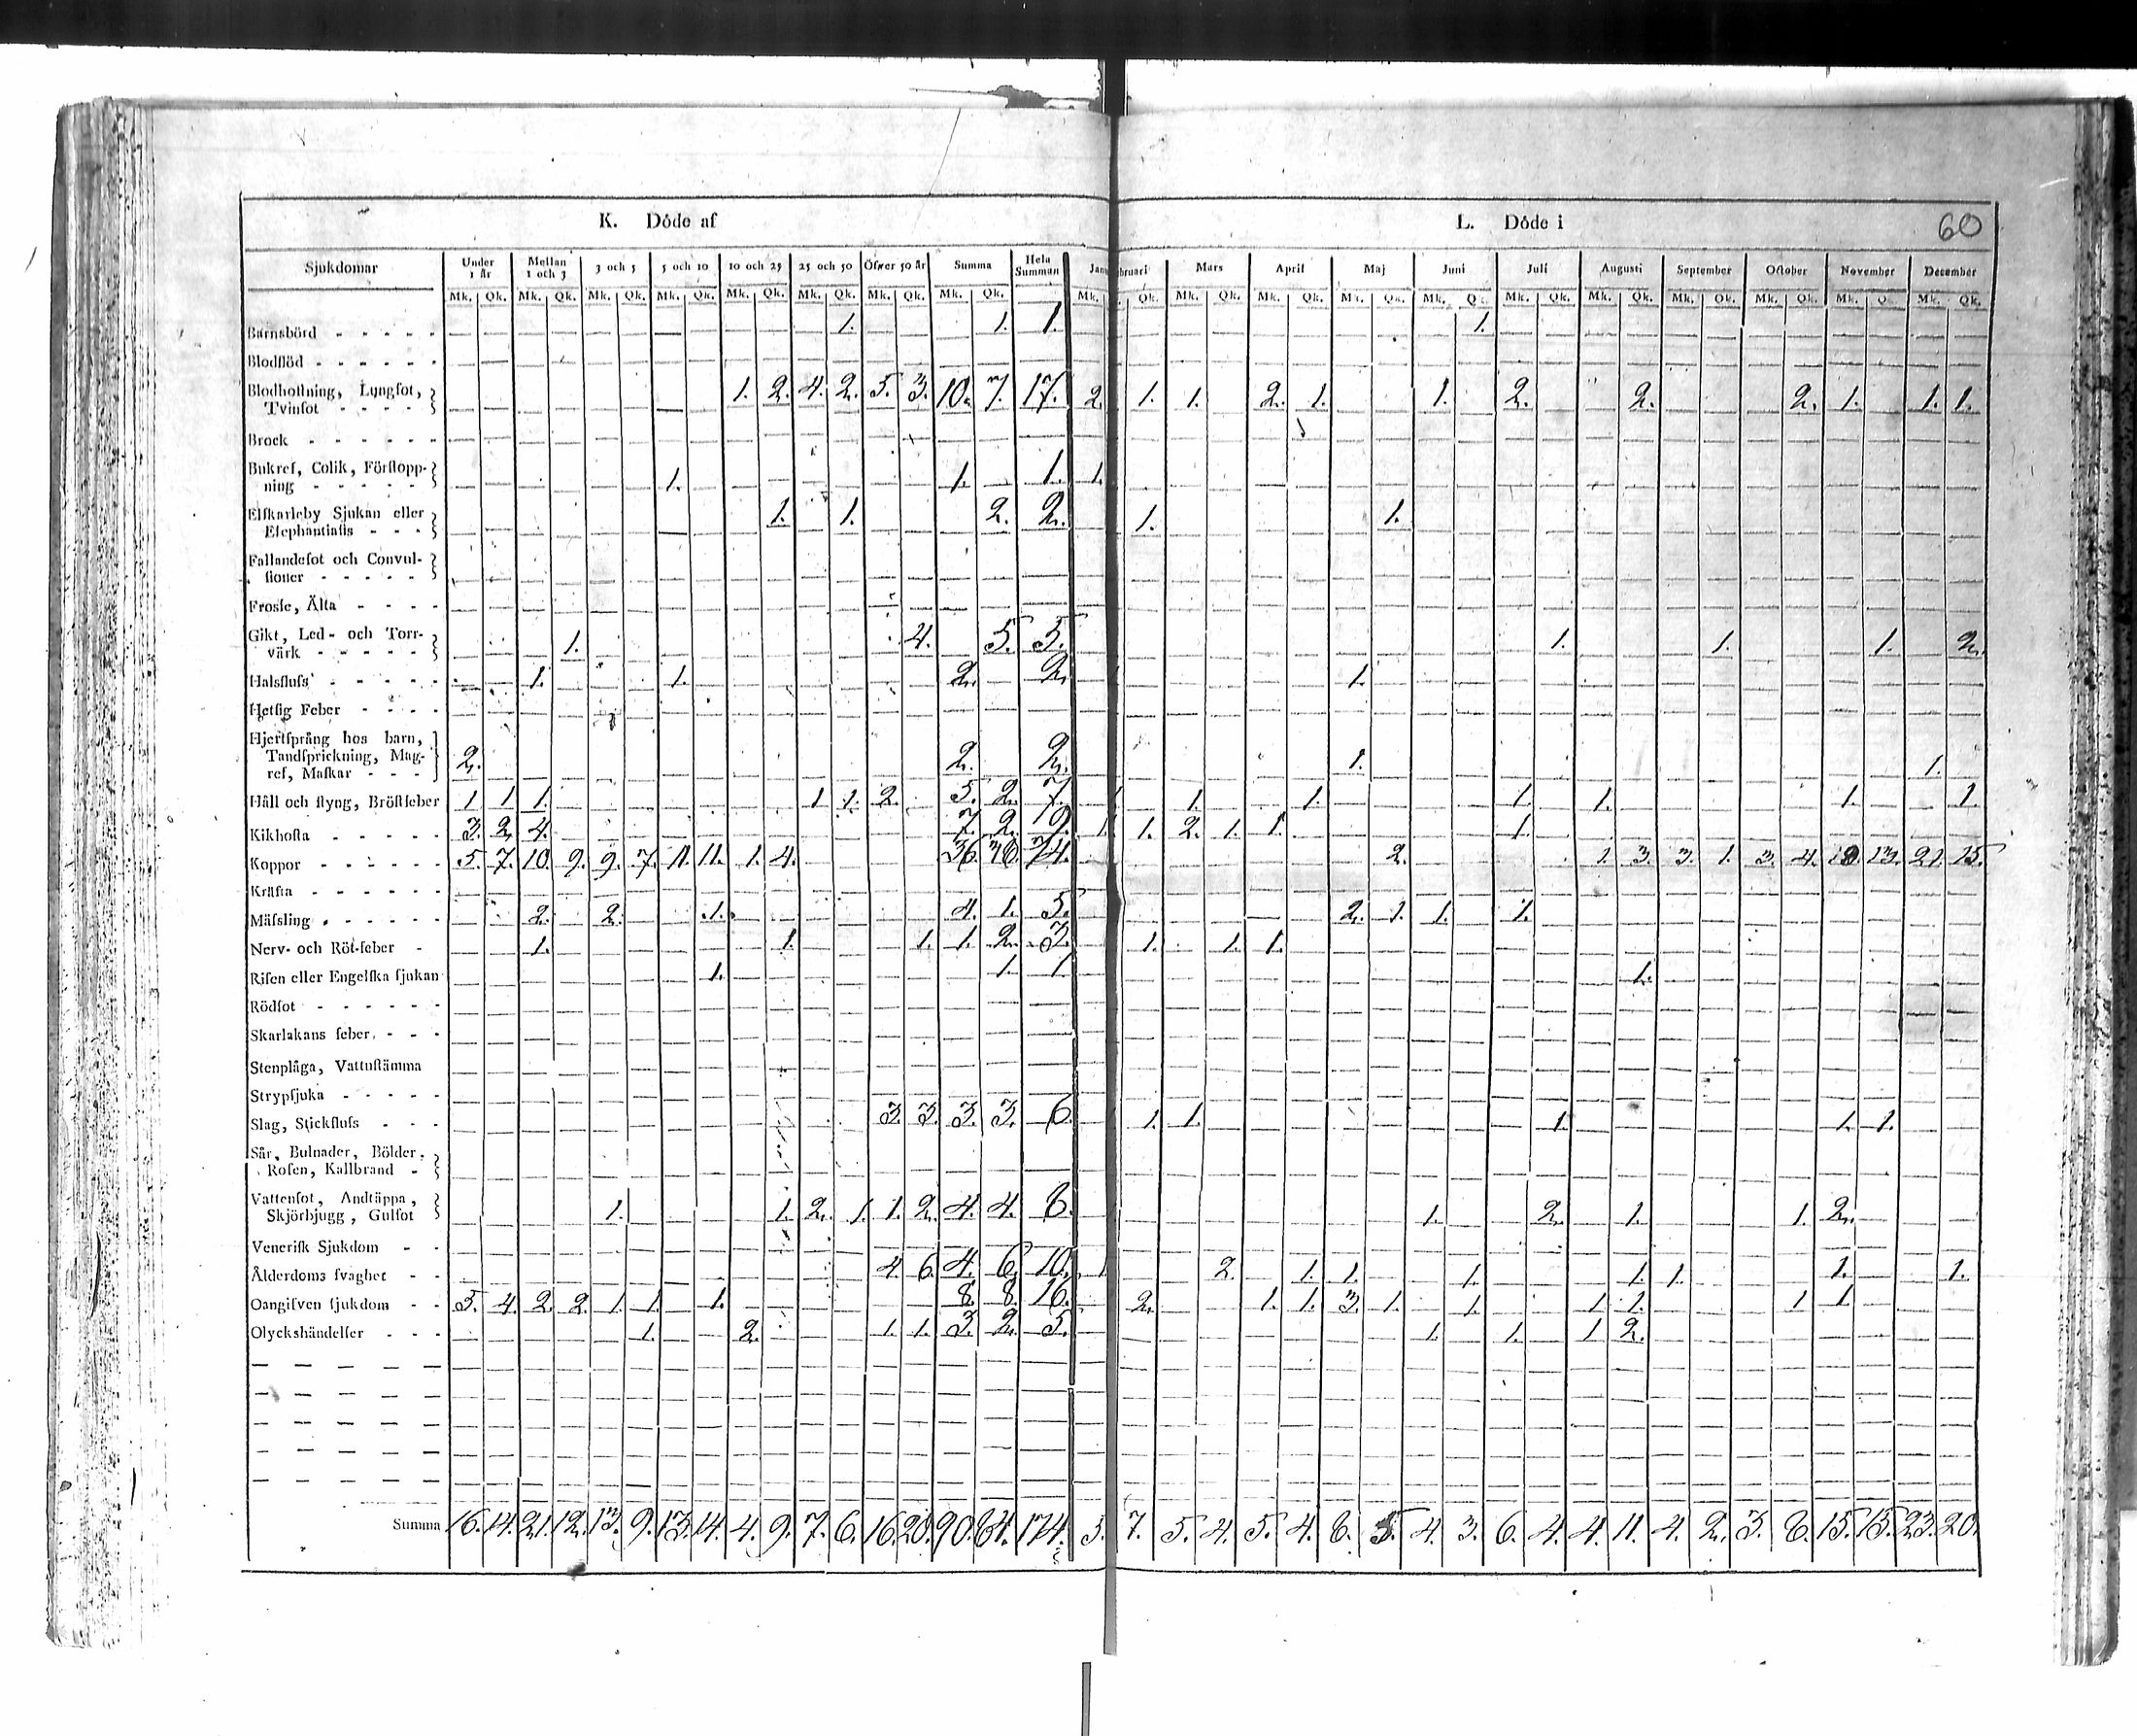 K. Döde af
L. Döde i
60
Sjukdomar Under 1 år Mellan 1 och 3 3 och 5 5 och 10 10 och 25 25 och 50 Öfver 50 år Summa Hela Summan Mars April Maj Juni Juli Augusti September October November December
Mk. Qk. Mk. Qk. Mk. Qk. Mk. Qk. Mk. Qk. Mk. Qk. Mk. Qk. Mk. Qk. Mk. Qk. Mk. Qk. Mk. Qk. Mk. Qk. Mk. Qk. Mk. Qk. Mk. Qk. Mk. Qk. Mk. Qk. Mk. Mk. Qk.
Barnsbörd - - - - - 1. 1. 1. 1.
Blodflöd - - - - - -
Blodhostning, Lungsot,
Tvinsot - - - - 1. 2. 4. 2. 5. 3. 10. 7. 17. 2. 1. 1. 2. 1. 1. 2. 2. 2. 1. 1. 1.
Brock - - - - - -
Bukref, Colik, Förstopp-
ning - - - - - 1. 1. 1. 1.
Elfkarleby Sjukan eller
Elephantiasis - - - 1. 1. 2. 2. 1. 1.
Fallandesot och Convul-
sioner - - - - -
Frossa, Älta - - - -
Gikt, Led- och Torr-
värk - - - - - 1. 4. 5. 5. 1. 1. 1. 2.
Halsfluss - - - - - 1. 1. 2. 2. 1.
Hetsig Feber - - - -
Hjertsprång hos barn,
Tandsprickning, Mag-
ref, Maskar - - - 2. 2. 2. 1. 1.
Håll och styng, Bröstfeber 1 1 1. 1 1. 2. 5. 2. 7. 1. 1. 1. 1. 1. 1.
Kikhosta - - - - - 3. 2. 4. 7. 2. 9. 1. 1. 2. 1. 1. 1.
Koppor - - - - - - 5. 7. 10. 9. 7. 11. 11. 1. 4. 36. 74. 2. 1. 3. 3. 1. 3. 4. 13. 21. 15.
Kräfta - - - - - -
Mässling - - - - - 2. 2. 1. 4. 1. 5. 2. 1. 1. 1.
Nerv- och Röt-feber - 1. 1. 1. 1. 2. 3. 1. 1. 1.
Risen eller Engelska sjukan 1. 1. 1 1.
Rödsot - - - - - -
Skarlakans feber - - -
Stenplåga, Vattustämma
Strypsjuka - - - - -
Slag, Stickfluss - - - 3. 3. 3. 3. 6. 1. 1. 1. 1. 1.
Sår, Bulnader, Bölder,
Rosen, Kallbrand -
Vattensot, Andtäppa,
Skjörbjugg, Gulsot 1. 1. 2. 1. 1. 2. 4. 4. 8. 1. 2. 1. 1. 2.
Venerisk Sjukdom - -
Ålderdoms svaghet - - 4 6. 4. 6. 10. 1. 2. 1. 1. 1. 1. 1. 1. 1.
Oangifven sjukdom - - 5. 4. 2. 2. 1. 1. 1. 8. 8. 16. 2. 1. 1. 3. 1. 1. 1 1. 1 1.
Olyckshändelser - - - 1. 2. 1. 1. 3. 2. 5. 1. 1. 1 2.
Summa 16. 14. 21. 12. 13. 9. 13. 14. 4. 9. 7. 6. 16. 20. 90. 84. 174. 5. 7. 5. 4. 5. 4. 8. 5. 4. 3. 6. 4. 4. 11. 4. 2. 3. 8. 15. 15. 23. 20.